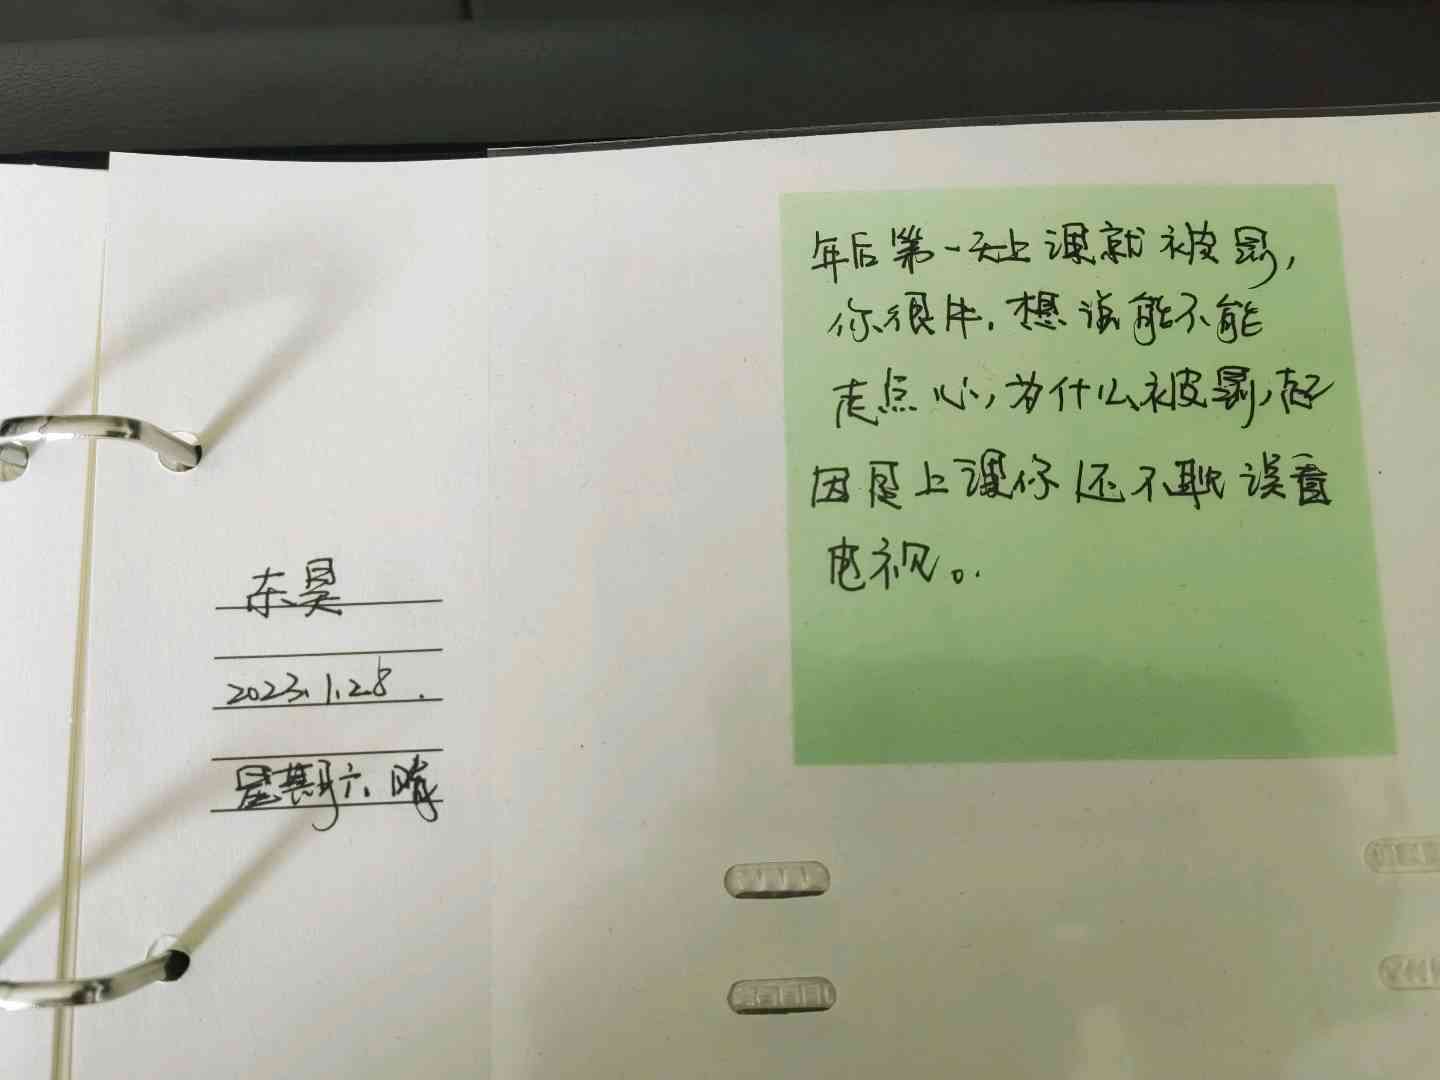 东昊
2023.1.28.
星期六、晴
年后第一天上课就被
你很牛.想说能不能
走点心,为什么被,起
因是上课你还不耽误看
电视。